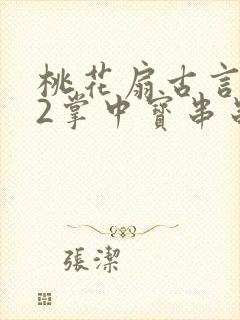 桃花扇古言
2掌中寳串
張潔